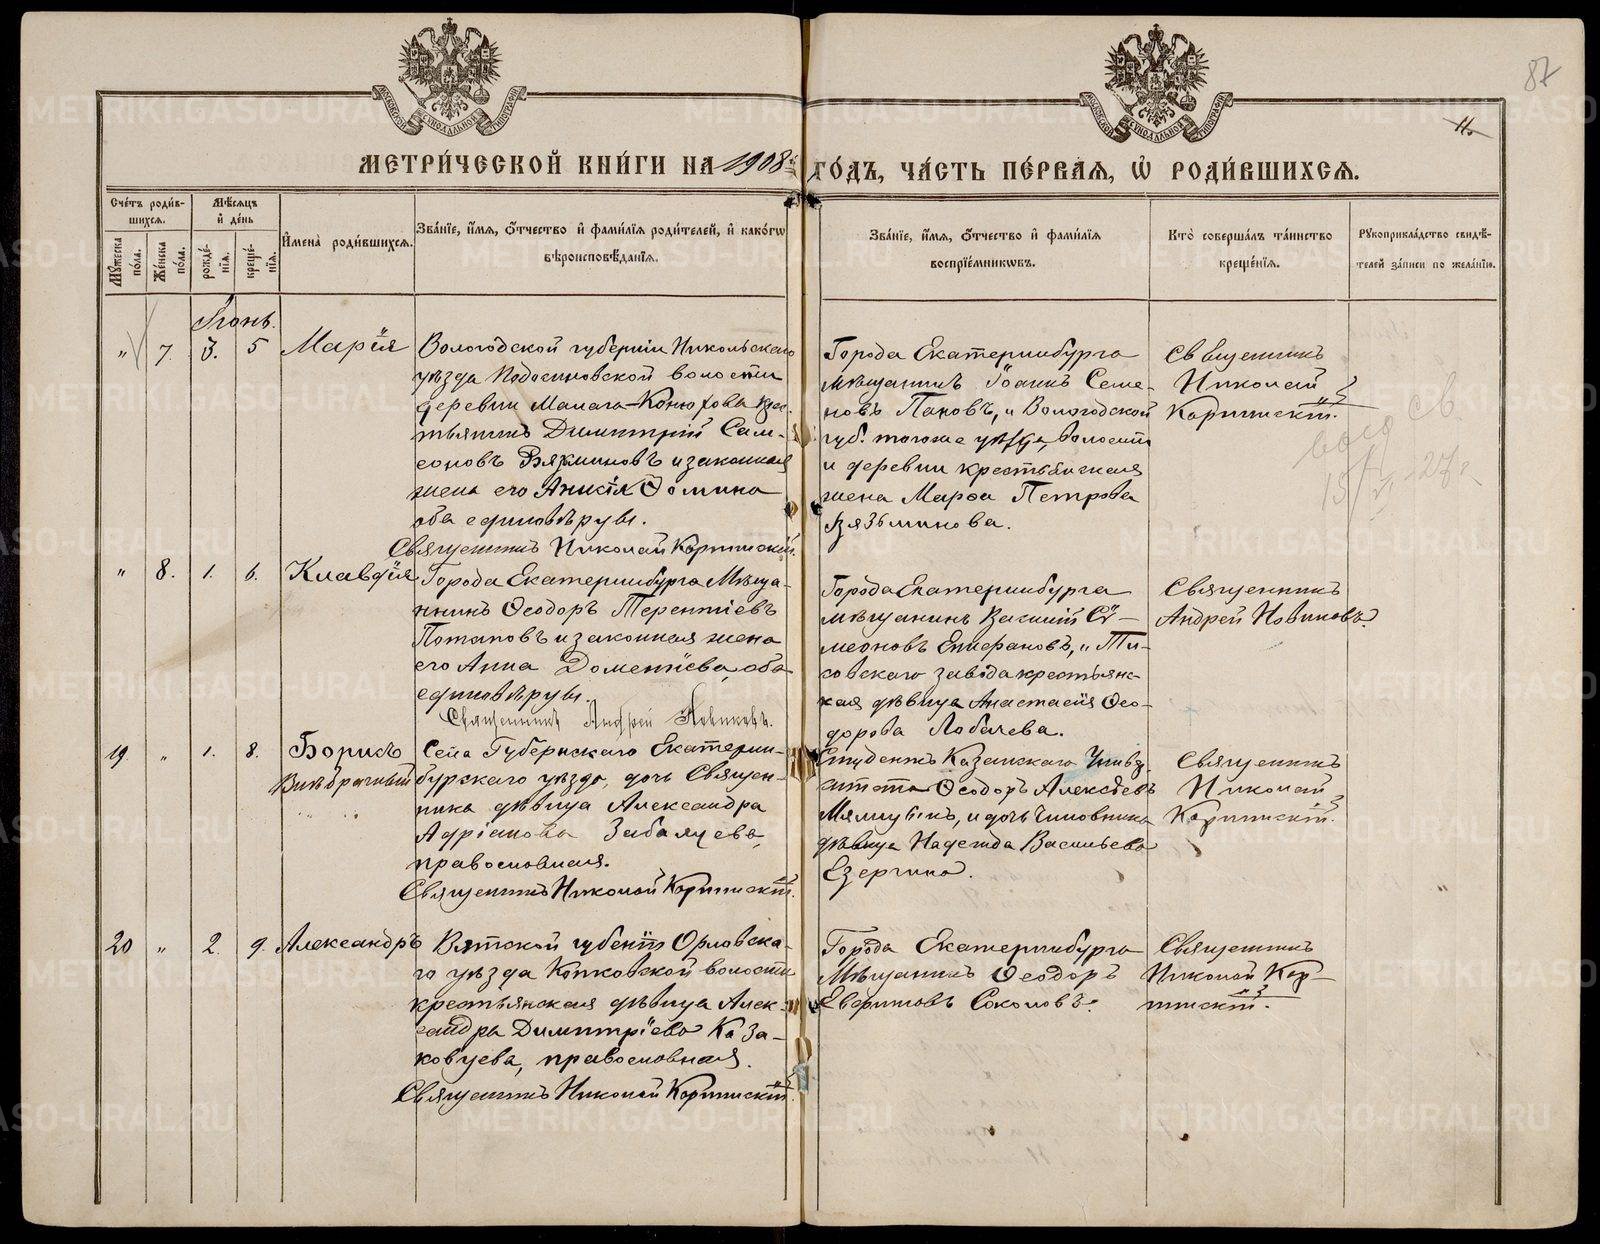 87
11.
МЕТРИ́ЧЕСКОЙ КНИ́ГИ НА 1908 ГО́ДЪ, ЧА́СТЬ ПЕ́РВАЯ, Ѽ РОДИ́ВШИХСЯ.
Сче́тъ роди́вшихся.
Мꙋжеска по́ла.
Же́нска по́ла.
Мѣ́сяцъ и҆ де́нь
рожде́нїя.
креще́нїя.
И҆мена̀ роди́вшихся.
Зва́нїе, и҆́мя, ѻ҆́тчество и҆ фами́лїя роди́телей, и҆ како́гѡ
вѣроисповѣ́данїя.
Зва́нїе, и҆́мя, ѻ҆́тчество и҆ фами́лїя
воспрїе́мникѡвъ.
Кто̀ соверша́лъ та́инство
креще́нїя.
Рꙋкоприкла́дство свидѣ́телей за́писи по жела́нїю.
Іюнь.
" 7. 3. 5 Марія
Вологодской губерніи Никольскаго
уѣзда Подосиновской волости
деревни Малага-Конюхова крестьянинъ Димитрій Самсоновъ Вязминовъ и законная
жена его Ѳомина
оба единовѣрцы.
Священникъ Николай
Города Екатеринбурга
мѣщанинъ Іоаннъ Семеновъ Пановъ, и Вологодской
губ. тогоже уѣзда, волости
и деревни крестьянская
жена Марѳа Петрова
Вязьминова.
Священникъ
Николай
15/VI 27 г.
" 8. 1. 6. Клавдія
Города Екатеринбурга Мѣща-
нинъ Ѳеодоръ Терентіевъ
Потаповъ и законная жена
его Анна Дометіева, оба
единовѣрцы.
Священникъ Андрей Новиковъ.
Города Екатеринбурга
мѣщанинъ Василій Сѵ-
меоновъ Епифановъ, и
завода крестьян-
ская дѣвица Анастасія Ѳео-
дорова Лобачева.
Священникъ
Андрей Новиковъ.
19. " 1. 8. Борисъ
Внѣбрачный
Села Губернскаго Екатерин-
бургскаго уѣзда, дочь Священ-
ника дѣвица Александра
Адріанова
православная.
Священникъ Николай
Студентъ Казанскаго Универ-
ситета Ѳеодоръ Алексѣевъ
и дочь чиновника
дѣвица Надежда Васильева
Священникъ
Николай
20 " 2. 9. Александръ
Вятской губерніи Орловска-
го уѣзда волости
крестьянская дѣвица Алек-
сандра Димитріева Каза-
ковцева, православная.
Священникъ Николай
Города Екатеринбурга
Мѣщанинъ Ѳеодоръ
Соколовъ.
Священникъ
Николай